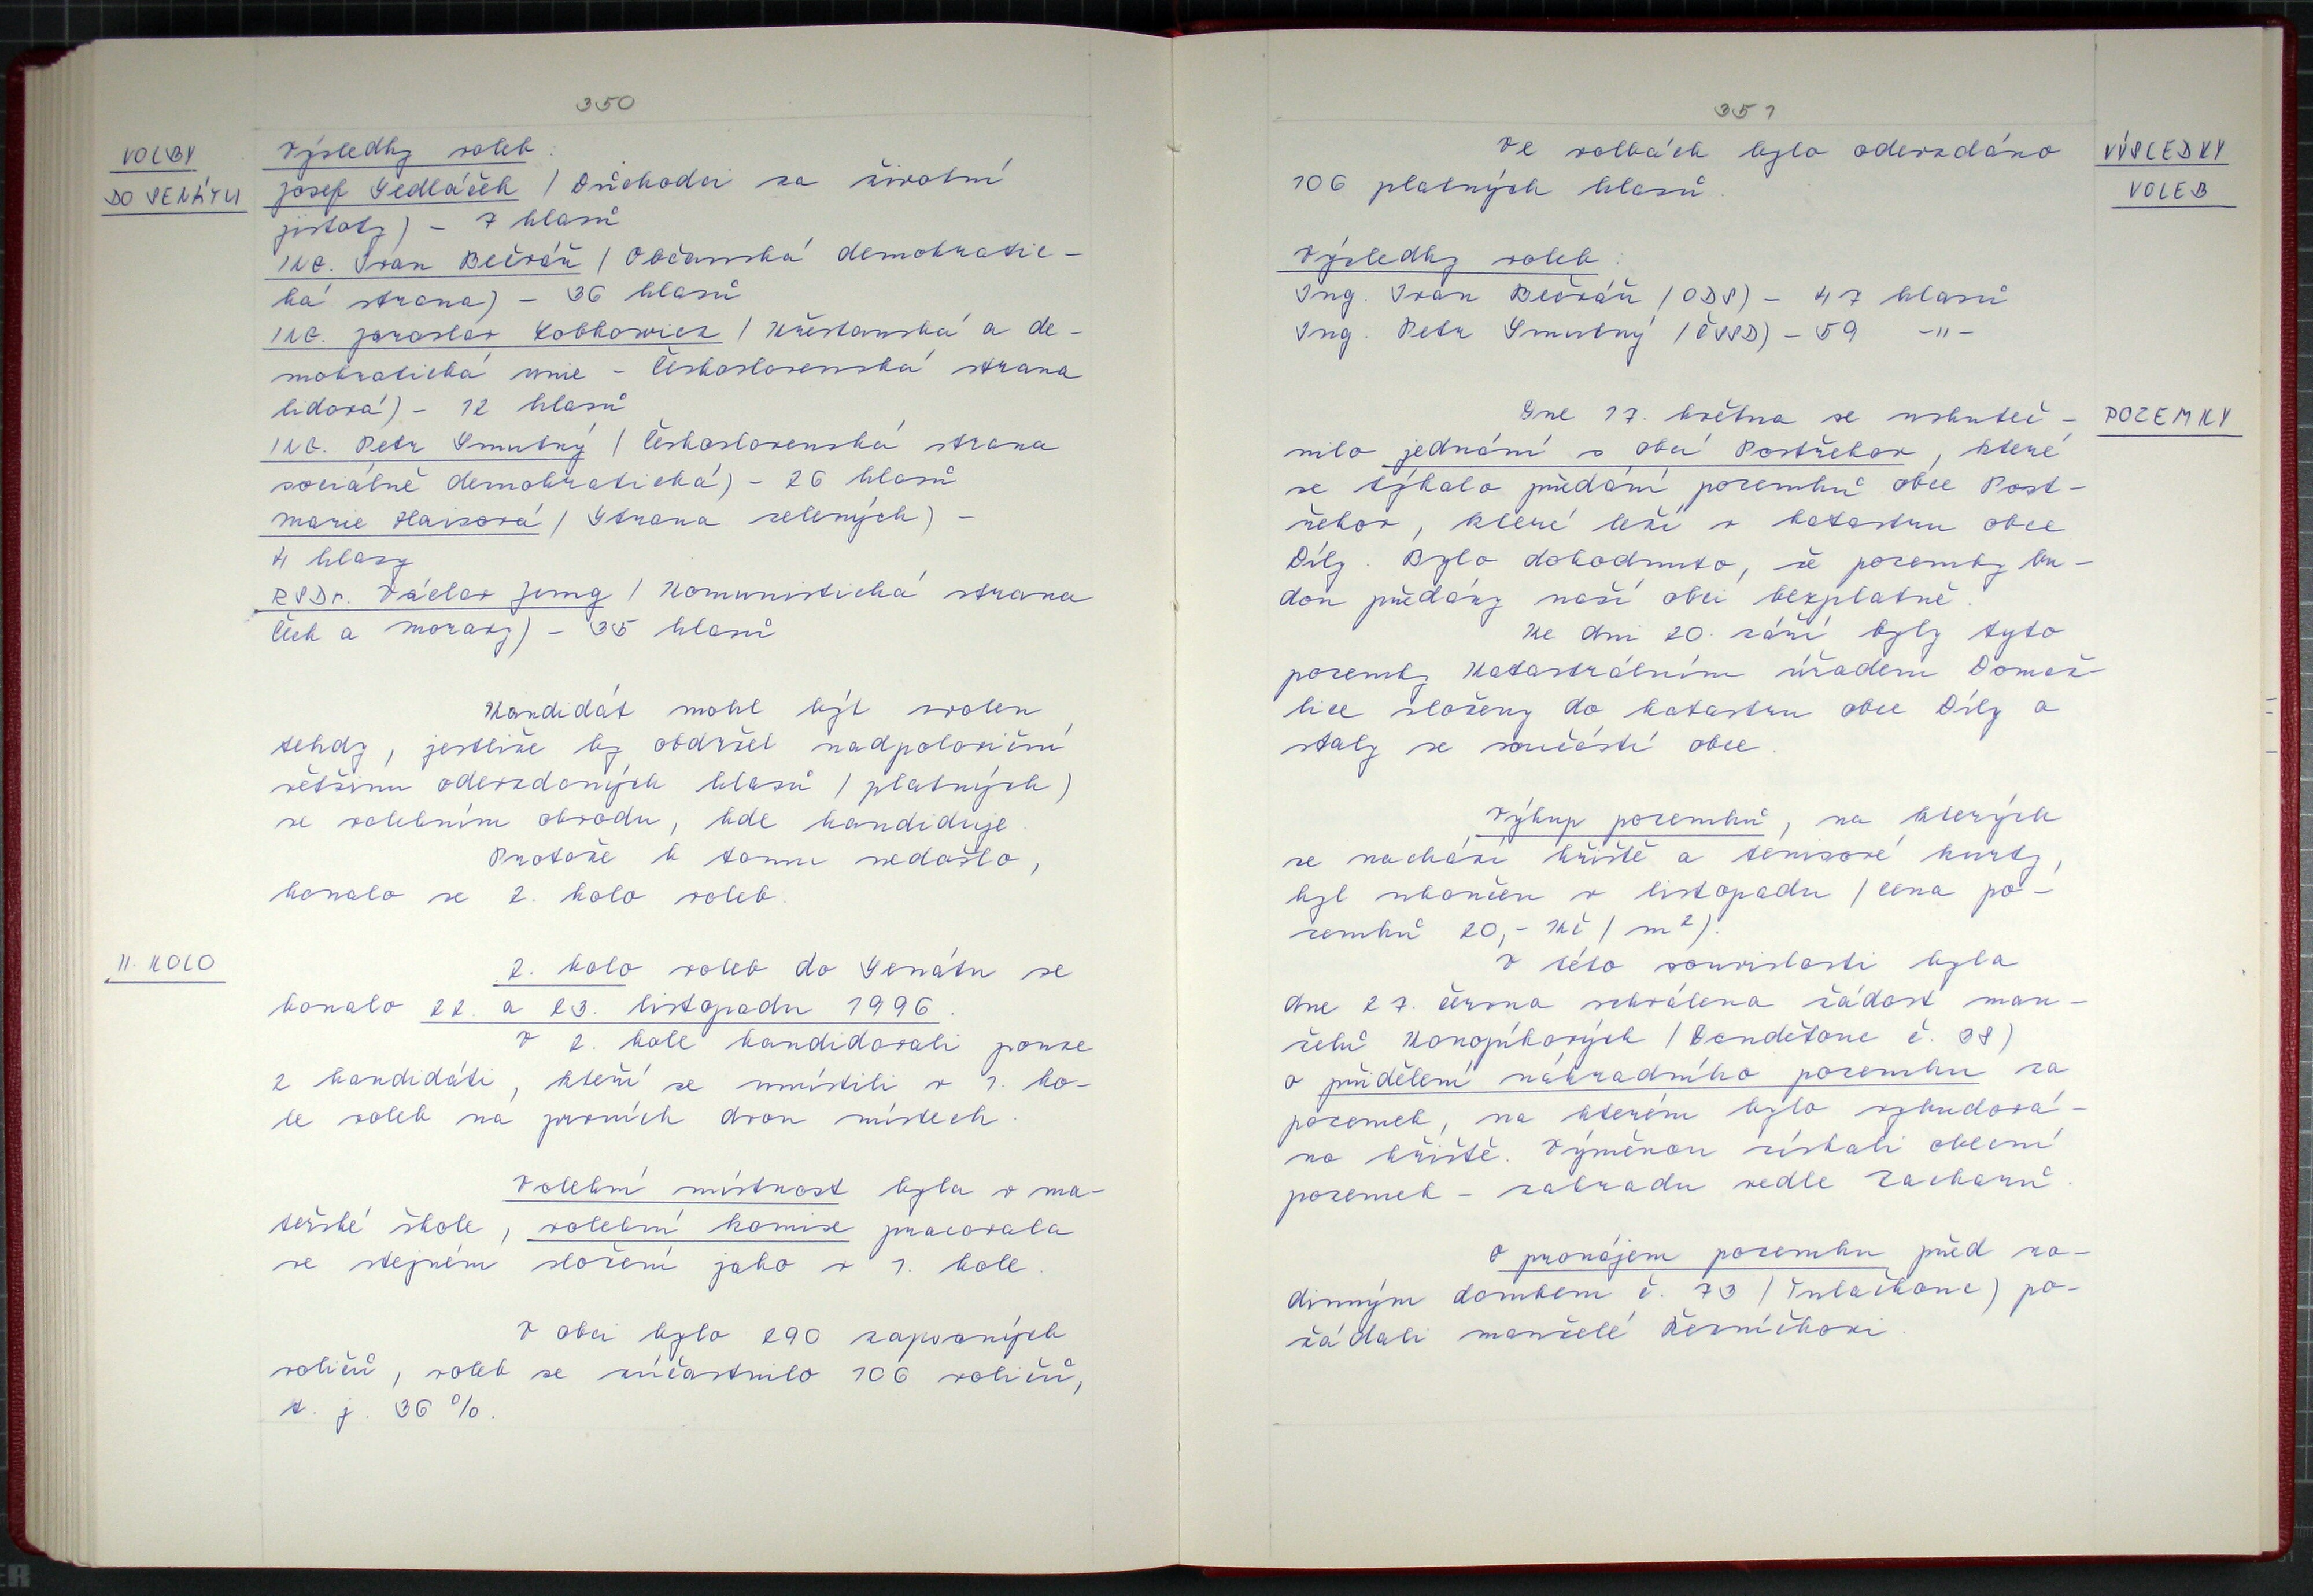 350
VOLBY
DO SENÁTU
Výsledky voleb:
Josef Sedláček (Důchodci za životní
jistoty) - 7 hlasů
ING. Ivan Bečvář (Občanská demokratic-
ká strana) - 36 hlasů
ING. Jaroslav Lobkowicz (Křesťanská a de-
mokratická unie - Československá strana
lidová) - 12 hlasů
ING. Petr Smutný (Československá strana
sociálně demokratická) - 26 hlasů
Marie Haisová (Strana zelených) -
4 hlasy
RSDr. Václav Jung (Komunistická strana
Čech a Moravy) - 35 hlasů
Kandidát mohl být zvolen
tehdy, jestliže by obdržel nadpoloviční
většinu odevzdaných hlasů (platných)
ve volebním obvodu, kde kandiduje.
Protože k tomu nedošlo,
konalo se 2. kolo voleb.
II. KOLO
2. kolo voleb do Senátu se
konalo 22. a 23. listopadu 1996.
V 2. kole kandidovali pouze
2 kandidáti, kteří se umístili v 1. ko-
le voleb na prvních dvou místech.
Volební místnost byla v ma-
teřské škole, volební komise pracovala
ve stejném složení jako v 1. kole.
V obci bylo 290 zapsaných
voličů, voleb se zúčastnilo 106 voličů,
t. j. 36 %.
351
Ve volbách bylo odevzdáno
106 platných hlasů.
VÝSLEDKY
VOLEB
Výsledky voleb:
Ing. Ivan Bečvář (ODS) - 47 hlasů
Ing. Petr Smutný (ČSSD) - 59 -"-
POZEMKY
Dne 17. května se uskuteč-
nilo jednání s obcí Postřekov, které
se týkalo předání pozemků obce Post-
řekov, které leží v katastru obce
Díly. Bylo dohodnuto, že pozemky bu-
dou předány naší obci bezplatně.
Ke dni 20. září byly tyto
pozemky Katastrálním úřadem Domaž-
lice vloženy do katastru obce Díly a
staly se součástí obce.
Výkup pozemků, na kterých
se nachází hřiště a tenisové kurty,
byl ukončen v listopadu (cena po-
zemků 20,- Kč / m²).
V této souvislosti byla
dne 27. června schválena žádost man-
želů Konopíkových (Bandětove č. 38)
o přidělení náhradního pozemku za
pozemek, na kterém bylo vybudová-
no hřiště. Výměnou získali obecní
pozemek - zahradu vedle Zacharů.
O pronájem pozemku před ro-
dinným domkem č. 73 (Čulačkove) po-
žádali manželé Řezníčkovi.